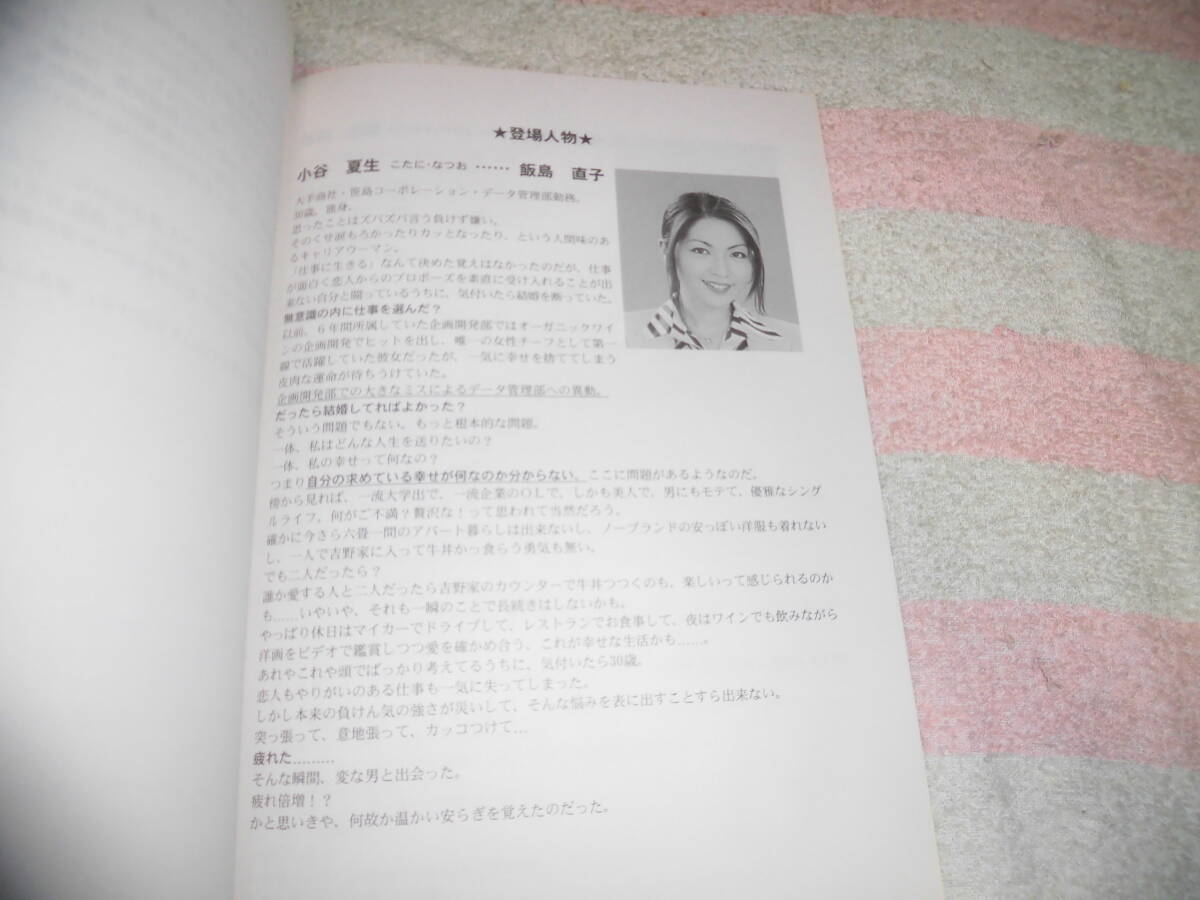 ★登場人物★
小谷　夏生 こたに・なつお ‥‥‥ 飯島　直子
大手商社・笹島コーポレーション・データ管理部勤務。
30歳。独身。
思ったことはズバズバ言う負けず嫌い。
そのくせ涙もろかったりカッとなったり、という人間味のあ
るキャリアウーマン。
「仕事に生きる」なんて決めた覚えはなかったのだが、仕事
が面白く恋人からのプロポーズを素直に受け入れることが出
来ない自分と闘っているうちに、気付いたら結婚を断っていた。
無意識の内に仕事を選んだ？
以前、６年間所属していた企画開発部ではオーガニックワイ
ンの企画開発でヒットを出し、唯一の女性チーフとして第一
線で活躍していた彼女だったが、一気に幸せを捨ててしまう
皮肉な運命が待ちうけていた。
企画開発部での大きなミスによるデータ管理部への異動。
だったら結婚してればよかった？
そういう問題でもない。もっと根本的な問題。
一体、私はどんな人生を送りたいの？
一体、私の幸せって何なの？
つまり自分の求めている幸せが何なのか分からない。ここに問題があるようなのだ。
傍から見れば、一流大学出で、一流企業のＯＬで、しかも美人で、男にもモテて、優雅なシング
ルライフ、何がご不満？贅沢な！って思われて当然だろう。
確かに今さら六畳一間のアパート暮らしは出来ないし、ノーブランドの安っぽい洋服も着れない
し、一人で吉野家に入って牛丼かっ食らう勇気も無い。
でも二人だったら？
誰か愛する人と二人だったら吉野家のカウンターで牛丼つつくのも、楽しいって感じられるのか
も……いやいや、それも一瞬のことで長続きはしないかも。
やっぱり休日はマイカーでドライブして、レストランでお食事して、夜はワインでも飲みながら
洋画をビデオで鑑賞しつつ愛を確かめ合う、これが幸せな生活かも……。
あれやこれや頭でばっかり考えてるうちに、気付いたら30歳。
恋人もやりがいのある仕事も一気に失ってしまった。
しかし本来の負けん気の強さが災いして、そんな悩みを表に出すことすら出来ない。
突っ張って、意地張って、カッコつけて…
疲れた………
そんな瞬間、変な男と出会った。
疲れ倍増！？
かと思いきや、何故か温かい安らぎを覚えたのだった。